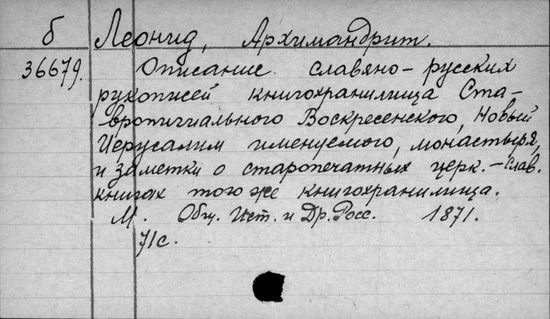 б Леонид, Архимандрит.
36679. Описание славяно-русских
рукописей книгохранилища Ста-
вропигиального Воскресенского, Новый
Иерусалим именуемого, монастыря,
и заметки о старопечатных церк.-слав.
книгах того же книгохранилища.
М. Общ. Ист. и Др. Росс. 1871.
71с.